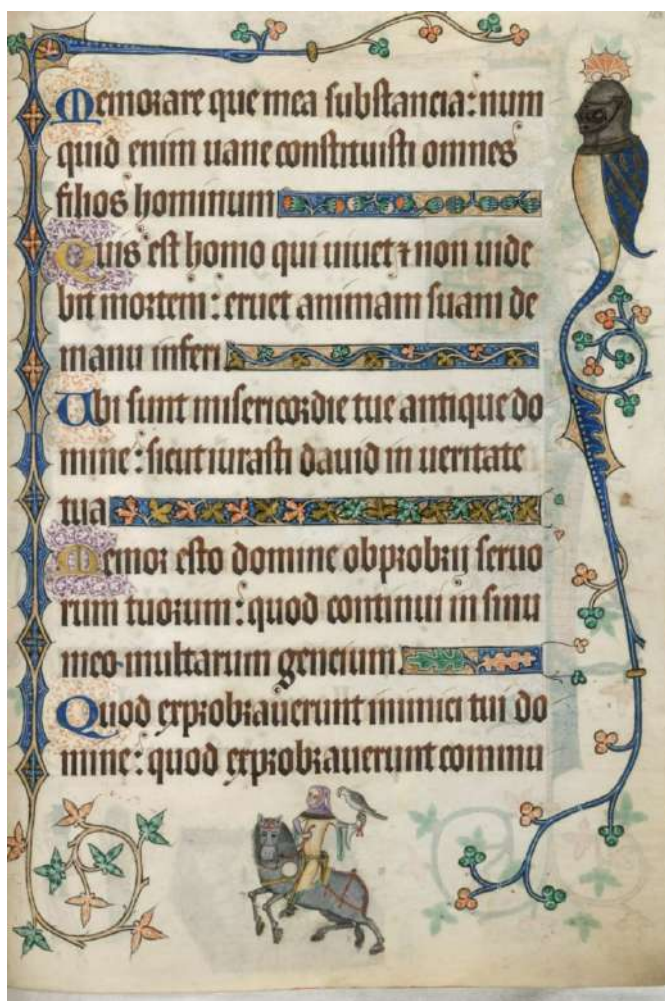 Memorare que mea substancia: num
quid enim uane constituisti omnes
filios hominum
Quis est homo qui uiuet ⁊ non uide
bit mortem: eruet animam suam de
manu inferi.
Ubi sunt misericordie tue antique do
mine: sicut iurasti dauid in ueritate
tua
Memor esto domine obprobrij seruo
rum tuorum: quod continui in sinu
meo multarum gencium.
Quod exprobrauerunt inimici tui do
mine: quod exprobrauerunt commu